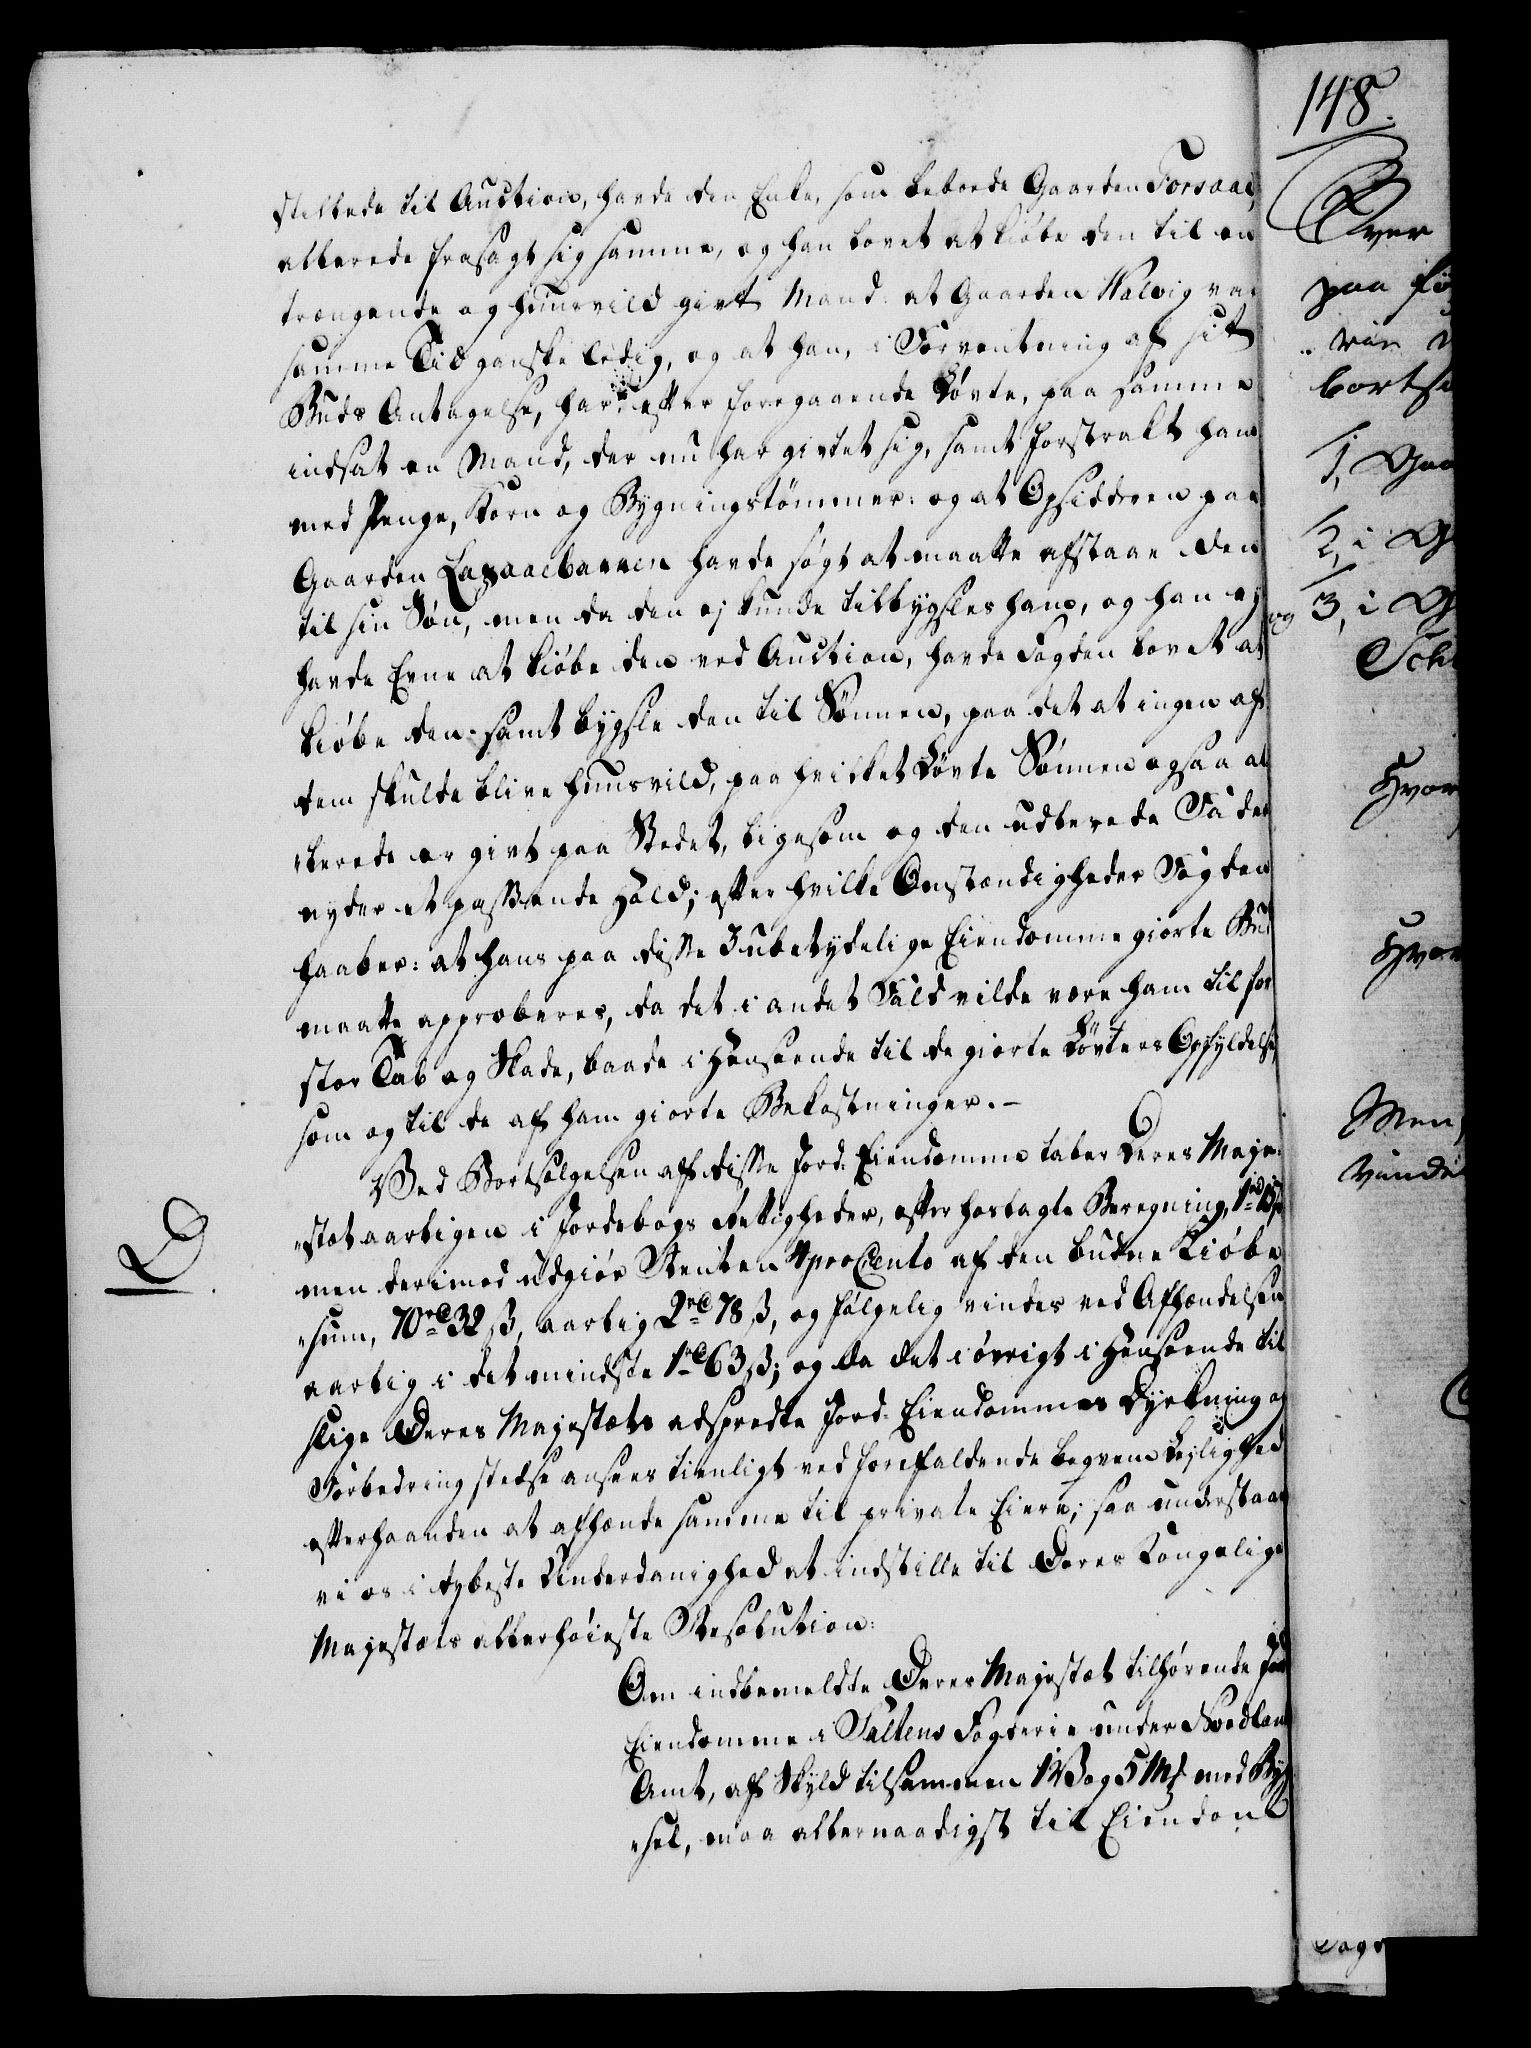 stillede til Auction, havde den Enke, som beboede Gaarden Forsaae,
allerede frasagt sig samme, og han lovet at kiöbe den til en
trængende og huusvild givt Mand: at Gaarden Halvig var
samme Tid ganske ledig, og at han, i Forventning af sit
Buds Antagelse, har efter foregaaende Löfte, paa samme
indsat en Mand, der nu har givtet sig, samt forstrakt ham
med Penge, Korn og Bygningstömmer: og at Opsidderen paa
Gaarden havde sögt at maatte afstaae den
til sin Sön, men da den ej kunde tilbygsles ham, og han ej
havde Evne at kiöbe den ved Auction, havde Fogden lovet at
kiöbe den samt bygsle den til Sönnen, paa det at ingen af
dem skulde blive huusvild, paa hvilket Löfte Sönnen ogsaa al-
lerede er givt paa Stedet, ligesom og den udlevede Fader
nyder et passende Hold; efter hvilke Omstændigheder Fogden
haaber: at hans paa disse 3 ubetydelige Eiendomme giorte Bud
maatte approberes, da det i andet Fald vilde være ham til for
stor Tab og Skade, baade i Henseende til de giorte Löfters Opfyldelse,
som og til de af ham giorte Bekostninger. –
Ved Bortsælgelsen af disse Jord-Eiendomme taber Deres Maje-
stæt aarligen i Jordebogs Rettigheder, efter foretagte Beregning, 1 rd 15 ß
men derimod udgiör Renten 4 pro Cento af den budne Kiöbe
sum, 70 rd 32 ß, aarlig 2 rd 78 ß, og fölgelig vindes ved Afhændelsen
aarlig i det mindste 1 rd 63 ß; og da det i övrigt i Henseende til
slige Deres Majestæts adspredte Jord-Eiendommes Dyrkning og
Forbedring stedse ansees tienligt ved forefaldende beqvem Lejlighed
efterhaanden at afhænde samme til private Eiere; saa understaae
vi os i dybeste Underdanighed at indstille til Deres Kongelige
Majestæts allerhöieste Resolution:
D
Om indbemeldte Deres Majestæt tilhörende Jord
Eiendomme i Saltens Fogderie under Nordlands
Amt, af Skyld tilsammen 1 Vog 5 Mk med Byg-
sel, maa allernaadigst til Eiendom
148.
Over
paa
bortse
1,
2, i
og 3, i
Hvor
Hvor
Men,